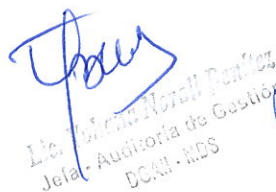 Lic. Norali Benítez
Jefa - Auditoría de Gestión
DGAII - MDS